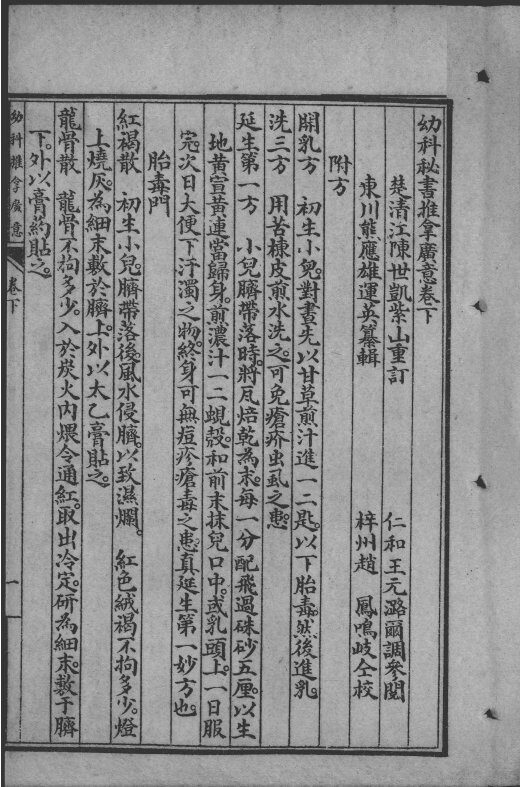 幼科秘書推拿廣意卷下
楚清江陳世凱紫山重訂
仁和王元潞爾調參閱
東川熊應雄運英纂輯
梓州趙 鳳鳴岐仝校
附方
開乳方 初生小兒。對晝先以甘草煎汁進一二匙。以下胎毒。然後進乳
洗三方 用苦楝皮煎水洗之。可免瘡疥虫虱之患。
延生第一方 小兒臍帶落時。將瓦焙乾為末。每一分配飛過硃砂五厘。以生
地黃宣黃連當歸身。煎濃汁一二蜆殼。和前末抹兒口中。或乳頭上。一日服
完。次日大便下汙濁之物。終身可無痘疹瘡毒之患。真延生第一妙方也。
胎毒門
紅褐散 初生小兒。臍帶落後。風水侵臍。以致濕爛。 紅色絨褐不拘多少。燈
上燒灰。為細末。敷於臍上。外以太乙膏貼之。
龍骨散 龍骨不拘多少。入於炭火內煨令通紅。取出冷定。研為細末。敷于臍
下。外以膏药貼之。
幼科推拿廣意 卷下 一